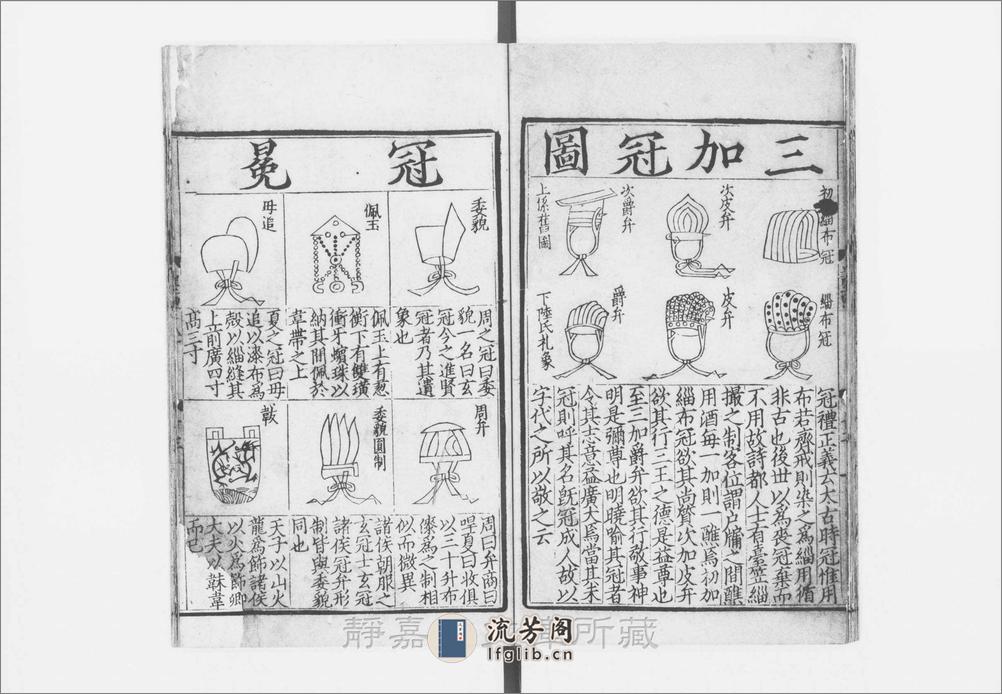 三加冠圖
初
布冠
次皮弁
次爵弁
上係舊圖
緇布冠
皮弁
爵弁
下陸氏札象
冠禮正義云大古時冠惟用
布若齊戒則染之爲緇用脩
非古也後世以爲喪冠棄而
不用故詩都人士有臺笠緇
撮之制客位謂户牖之間醮
用酒每一加則一醮焉初加
緇布冠欲其尚質次加皮弁
欲其行三王之德是益尊也
至三加爵弁欲其行敬事神
明是彌尊也明曉喻其冠者
令其志意益廣大焉當其未
冠則呼其名旣冠成人故以
字代之所以敬之云
冠冕
委貌
佩玉
毋追
周之冠曰委
貌一名曰玄
冠今之進賢
冠者乃其遺
象也
佩玉上有葱
衡下有雙璜
衝牙蠙珠以
納其間佩於
革帶之上
夏之冠曰毋
追以漆布爲
殼以緇縫其
上前廣四寸
高三寸
周弁
委貌圓制
韍
周曰弁商曰
冔夏曰收俱
以三十升布
漆爲之制相
似而微異
諸侯朝服之
玄冠士玄冠
諸侯冠弁形
制皆與委貌
同也
天子以山火
龍爲飾諸侯
以火爲飾卿
大夫以韎韋
而已
靜嘉
所藏
流芳阁
lfglib.cn